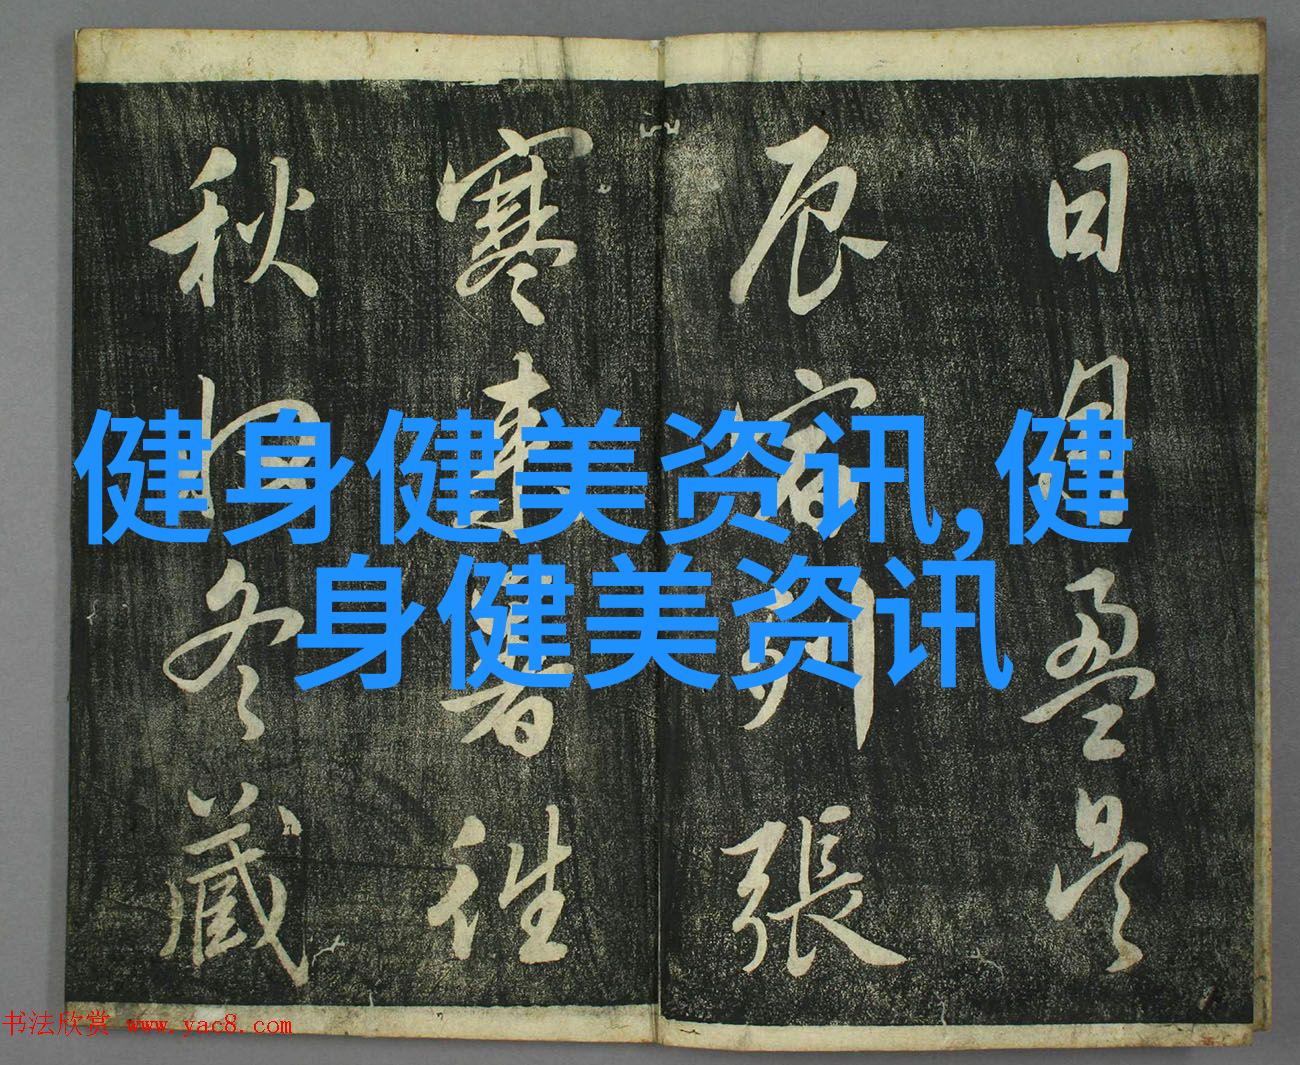 日月盈昃
辰宿列張
寒來暑往
秋收冬藏
健身健美资讯,健
身健美资讯
书法欣赏 www.yac8.com